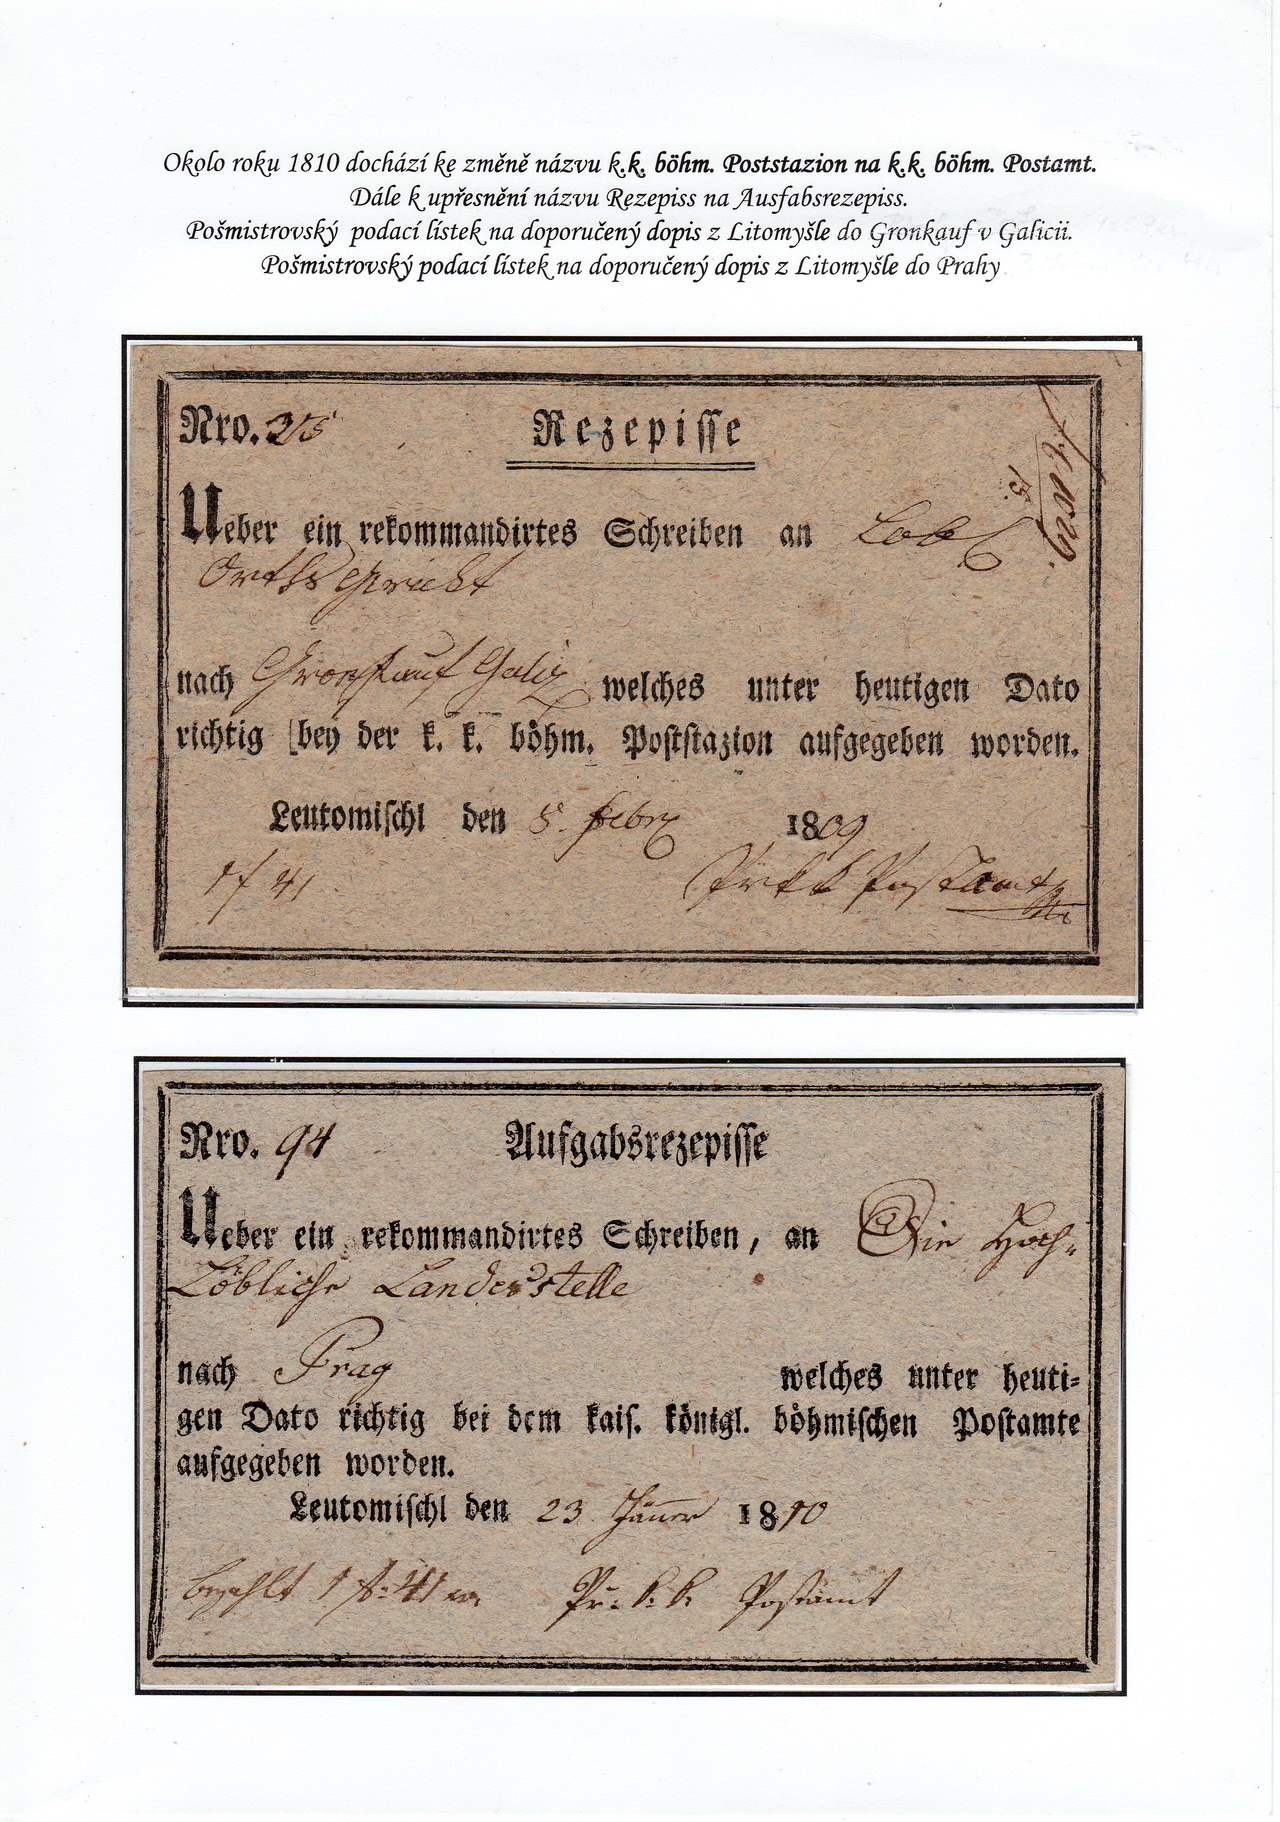 Okolo roku 1810 dochází ke změně názvu k.k. böhm. Poststazion na k.k. böhm. Postamt.
Dále k upřesnění názvu Rezepiss na Ausfabsrezepiss.
Pošmistrovský podací lístek na doporučený dopis z Litomyšle do Gronkauf v Galicii.
Pošmistrovský podací lístek na doporučený dopis z Litomyšle do Prahy
Nro. 215 Rezepisse
Ueber ein rekommandirtes Schreiben an Löbl
Orths Gericht
nach Gronkauf Galiz welches unter heutigen Dato
richtig bey der k. k. böhm. Poststazion aufgegeben worden.
Leutomischl den 5. Febr 1809
1 f 41 Pr k k Postamt
Nro. 94 Aufgabsrezepisse
Ueber ein rekommandirtes Schreiben, an Die Hoch-
Löbliche Landesstelle
nach Prag welches unter heuti-
gen Dato richtig bei dem kais. königl. böhmischen Postamte
aufgegeben worden.
Leutomischl den 23 Jänner 1810
bezahlt 1 f: 41 Pr: k: k: Postamt